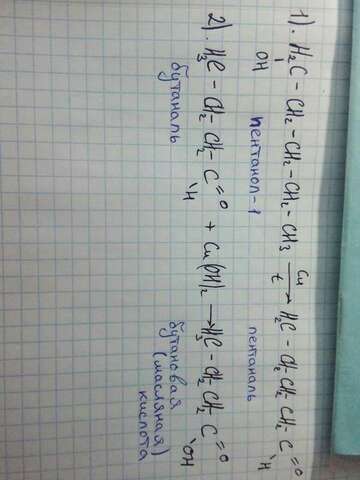 1). H₂C - CH₂ - CH₂ - CH₂ - CH₃ Cu t → H₃C - CH₂CH₂CH₂ C =O H
OH
пентанол-1 пентаналь
2). H₃C - CH₂ - CH₂ C =O H + Cu(OH)₂ → H₃C - CH₂CH₂ C =O OH
бутаналь бутановая
(масляная)
кислота